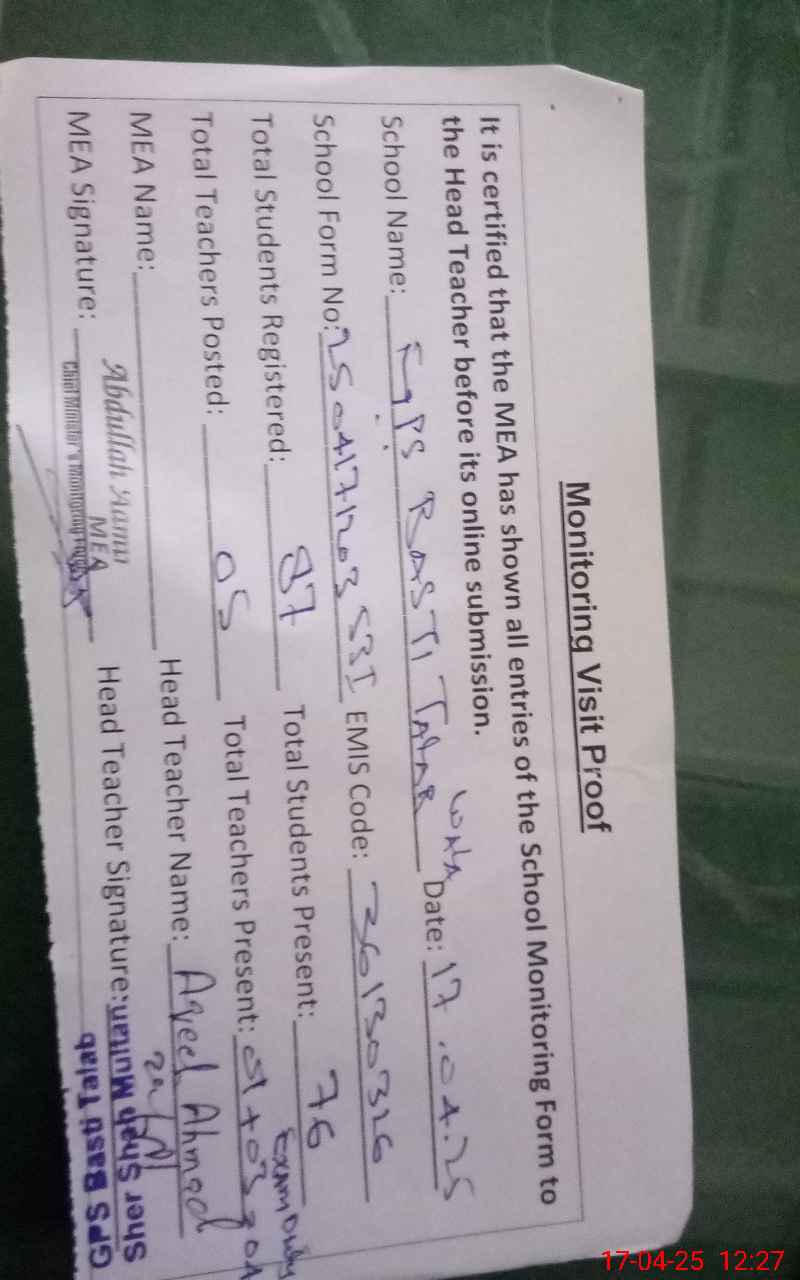 Monitoring Visit Proof
It is certified that the MEA has shown all entries of the School Monitoring Form to
the Head Teacher before its online submission.
School Name: GPS BASTI TALAB Date: 17.04.25
School Form No: EMIS Code: 36130326
Total Students Registered: 87 Total Students Present: 76
Total Teachers Posted: 05 Total Teachers Present: 01+03 Exam Duty
MEA Name: Head Teacher Name: Aqeel Ahmad
Abdullah
MEA
Chief Minister's Monitoring
MEA Signature: Head Teacher Signature:
Sher Shah Multan
GPS Basti Talab
17-04-25 12:27